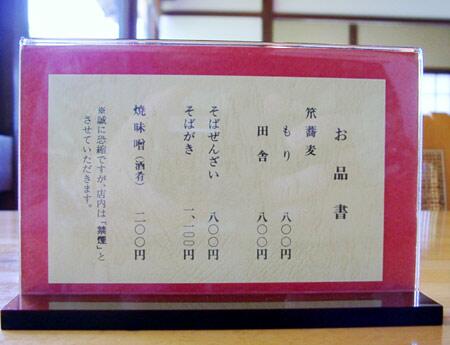 お品書
笊蕎麦
もり 八〇〇円
田舎 八〇〇円
そばぜんざい 八〇〇円
そばがき 一、一〇〇円
焼味噌(酒肴) 二〇〇円
※誠に恐縮ですが、店内は「禁煙」と
させていただきます。